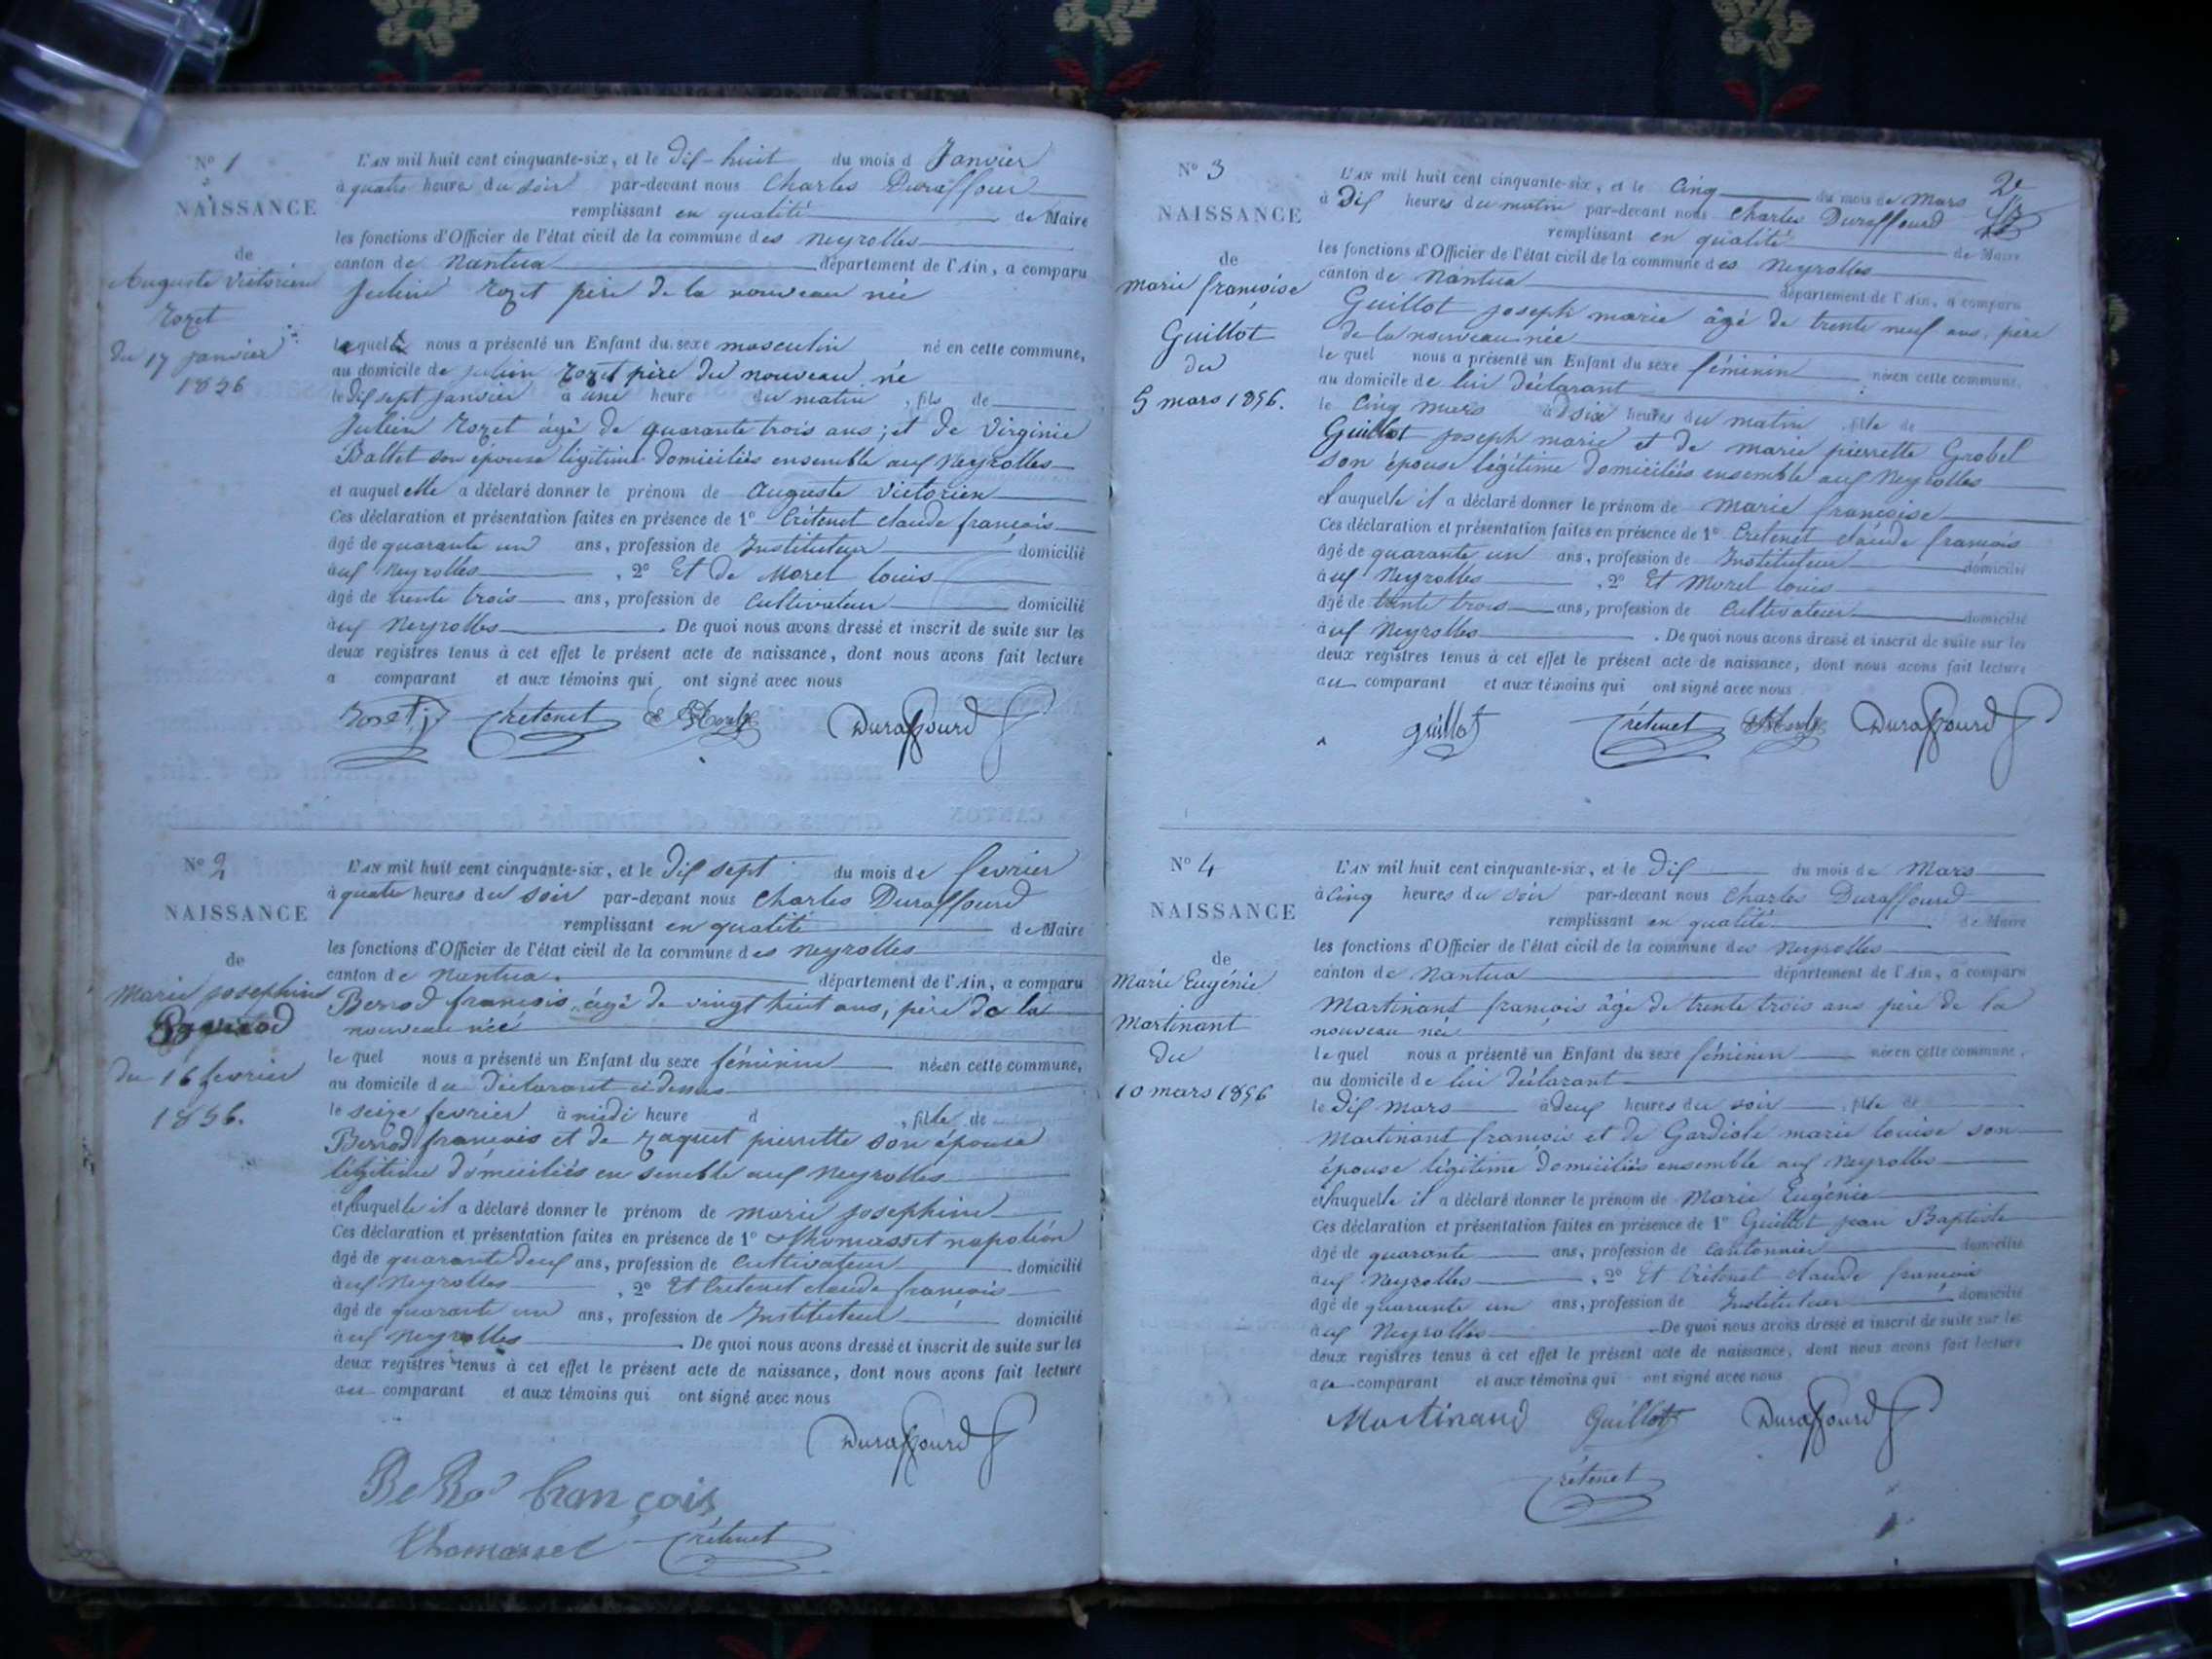 N° 1
NAISSANCE
de
Auguste Victorien
Rozet
du 17 janvier
1856
L'AN mil huit cent cinquante-six, et le dix-huit du mois d Janvier
à quatre heure du soir par-devant nous Charles Duraffour
remplissant en qualité de Maire
les fonctions d'Officier de l'état civil de la commune des Neyrolles
canton de Nantua département de l'Ain, a comparu
Julien Rozet père de la nouveau née
lequel nous a présenté un Enfant du sexe masculin né en cette commune,
au domicile de Julien Rozet père du nouveau né
le dix sept janvier à une heure du matin, fils de
Julien Rozet âgé de quarante trois ans; et de Virginie
Ballet son épouse légitime domiciliés ensemble aux Neyrolles
et auquel elle a déclaré donner le prénom de Auguste Victorien
Ces déclaration et présentation faites en présence de 1° Crétenet claude françois
âgé de quarante un ans, profession de Instituteur domicilié
aux Neyrolles, 2° Et de Morel louis
âgé de trente trois ans, profession de Cultivateur domicilié
aux Neyrolles. De quoi nous avons dressé et inscrit de suite sur les
deux registres tenus à cet effet le présent acte de naissance, dont nous avons fait lecture
a comparant et aux témoins qui ont signé avec nous
Rozet j Crétenet Duraffourd
N° 2
NAISSANCE
de
Marie josephine
du 16 fevrier
1856.
L'AN mil huit cent cinquante-six, et le dix sept du mois de fevrier
à quatre heures du soir par-devant nous Charles Duraffourd
remplissant en qualité de Maire
les fonctions d'Officier de l'état civil de la commune des Neyrolles
canton de Nantua. département de l'Ain, a comparu
Berrod françois, âgé de vingt huit ans, père de la
nouveau née
lequel nous a présenté un Enfant du sexe féminin née en cette commune,
au domicile du déclarant ci dessus
le seize fevrier à midi heure d, fille de
Berrod françois et de Raquet pierrette son épouse
légitime domiciliés en semble aux Neyrolles
et auquelle il a déclaré donner le prénom de marie josephine
Ces déclaration et présentation faites en présence de 1° Thomasset napoléon
âgé de quarante deux ans, profession de Cultivateur domicilié
aux Neyrolles, 2° Et Crétenet claude françois
âgé de quarante un ans, profession de Instituteur domicilié
aux Neyrolles. De quoi nous avons dressé et inscrit de suite sur les
deux registres tenus à cet effet le présent acte de naissance, dont nous avons fait lecture
au comparant et aux témoins qui ont signé avec nous
Duraffourd
françois
Thomasset Crétenet
2e
N° 3
NAISSANCE
de
marie françoise
Guillot
du
5 mars 1856.
L'AN mil huit cent cinquante-six, et le Cinq du mois de Mars
à Dix heures du matin par-devant nous Charles Duraffourd
remplissant en qualité de Maire
les fonctions d'Officier de l'état civil de la commune des Neyrolles
canton de Nantua département de l'Ain, a comparu
Guillot joseph marie âgé de trente neuf ans, père
de la nouveau née
le quel nous a présenté un Enfant du sexe féminin née en cette commune,
au domicile de lui déclarant
le Cinq mars à six heures du matin, fille de
Guillot joseph marie et de marie pierrette Grobel
son épouse légitime domiciliés ensemble aux Neyrolles
et auquelle il a déclaré donner le prénom de Marie françoise
Ces déclaration et présentation faites en présence de 1° Crétenet claude françois
âgé de quarante un ans, profession de Instituteur domicilié
aux Neyrolles, 2° Et Morel louis
âgé de trente trois ans, profession de Cultivateur domicilié
aux Neyrolles. De quoi nous avons dressé et inscrit de suite sur les
deux registres tenus à cet effet le présent acte de naissance, dont nous avons fait lecture
au comparant et aux témoins qui ont signé avec nous
guillot Crétenet Duraffourd
N° 4
NAISSANCE
de
Marie Eugénie
Martinant
du
10 mars 1856
L'AN mil huit cent cinquante-six, et le Dix du mois de Mars
à Cinq heures du soir par-devant nous Charles Duraffourd
remplissant en qualité de Maire
les fonctions d'Officier de l'état civil de la commune des Neyrolles
canton de Nantua département de l'Ain, a comparu
Martinant françois âgé de trente trois ans père de la
nouveau née
le quel nous a présenté un Enfant du sexe féminin née en cette commune,
au domicile de lui déclarant
le Dix Mars à deux heures du soir, fille de
Martinant françois et de Gardiole marie louise son
épouse légitime domiciliés ensemble aux Neyrolles
et auquelle il a déclaré donner le prénom de Marie Eugénie
Ces déclaration et présentation faites en présence de 1° Guillot jean Baptiste
âgé de quarante ans, profession de Cantonnier domicilié
aux Neyrolles, 2° Et Crétenet claude françois
âgé de quarante un ans, profession de Instituteur domicilié
aux Neyrolles De quoi nous avons dressé et inscrit de suite sur les
deux registres tenus à cet effet le présent acte de naissance, dont nous avons fait lecture
au comparant et aux témoins qui ont signé avec nous
Martinand Guillot Duraffourd
Crétenet